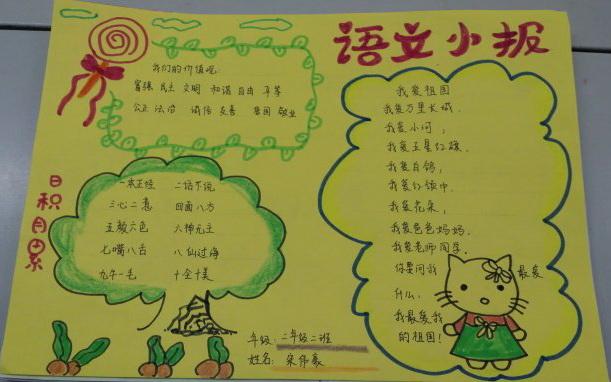 语文小报
我们的价值观:
富强 民主 文明 和谐 自由 平等
公正 法治 诚信 友善 爱国 敬业
日积月累
一本正经 二话不说
三心二意 四面八方
五颜六色 六神无主
七嘴八舌 八仙过海
九牛一毛 十全十美
我爱祖国
我爱万里长城,
我爱小河,
我爱五星红旗,
我爱白鸽,
我爱红领巾,
我爱花朵,
我爱爸爸妈妈,
我爱老师同学,
你要问我 最爱
什么,
我最爱我
的祖国!
年级:二年级二班
姓名:宋伟豪